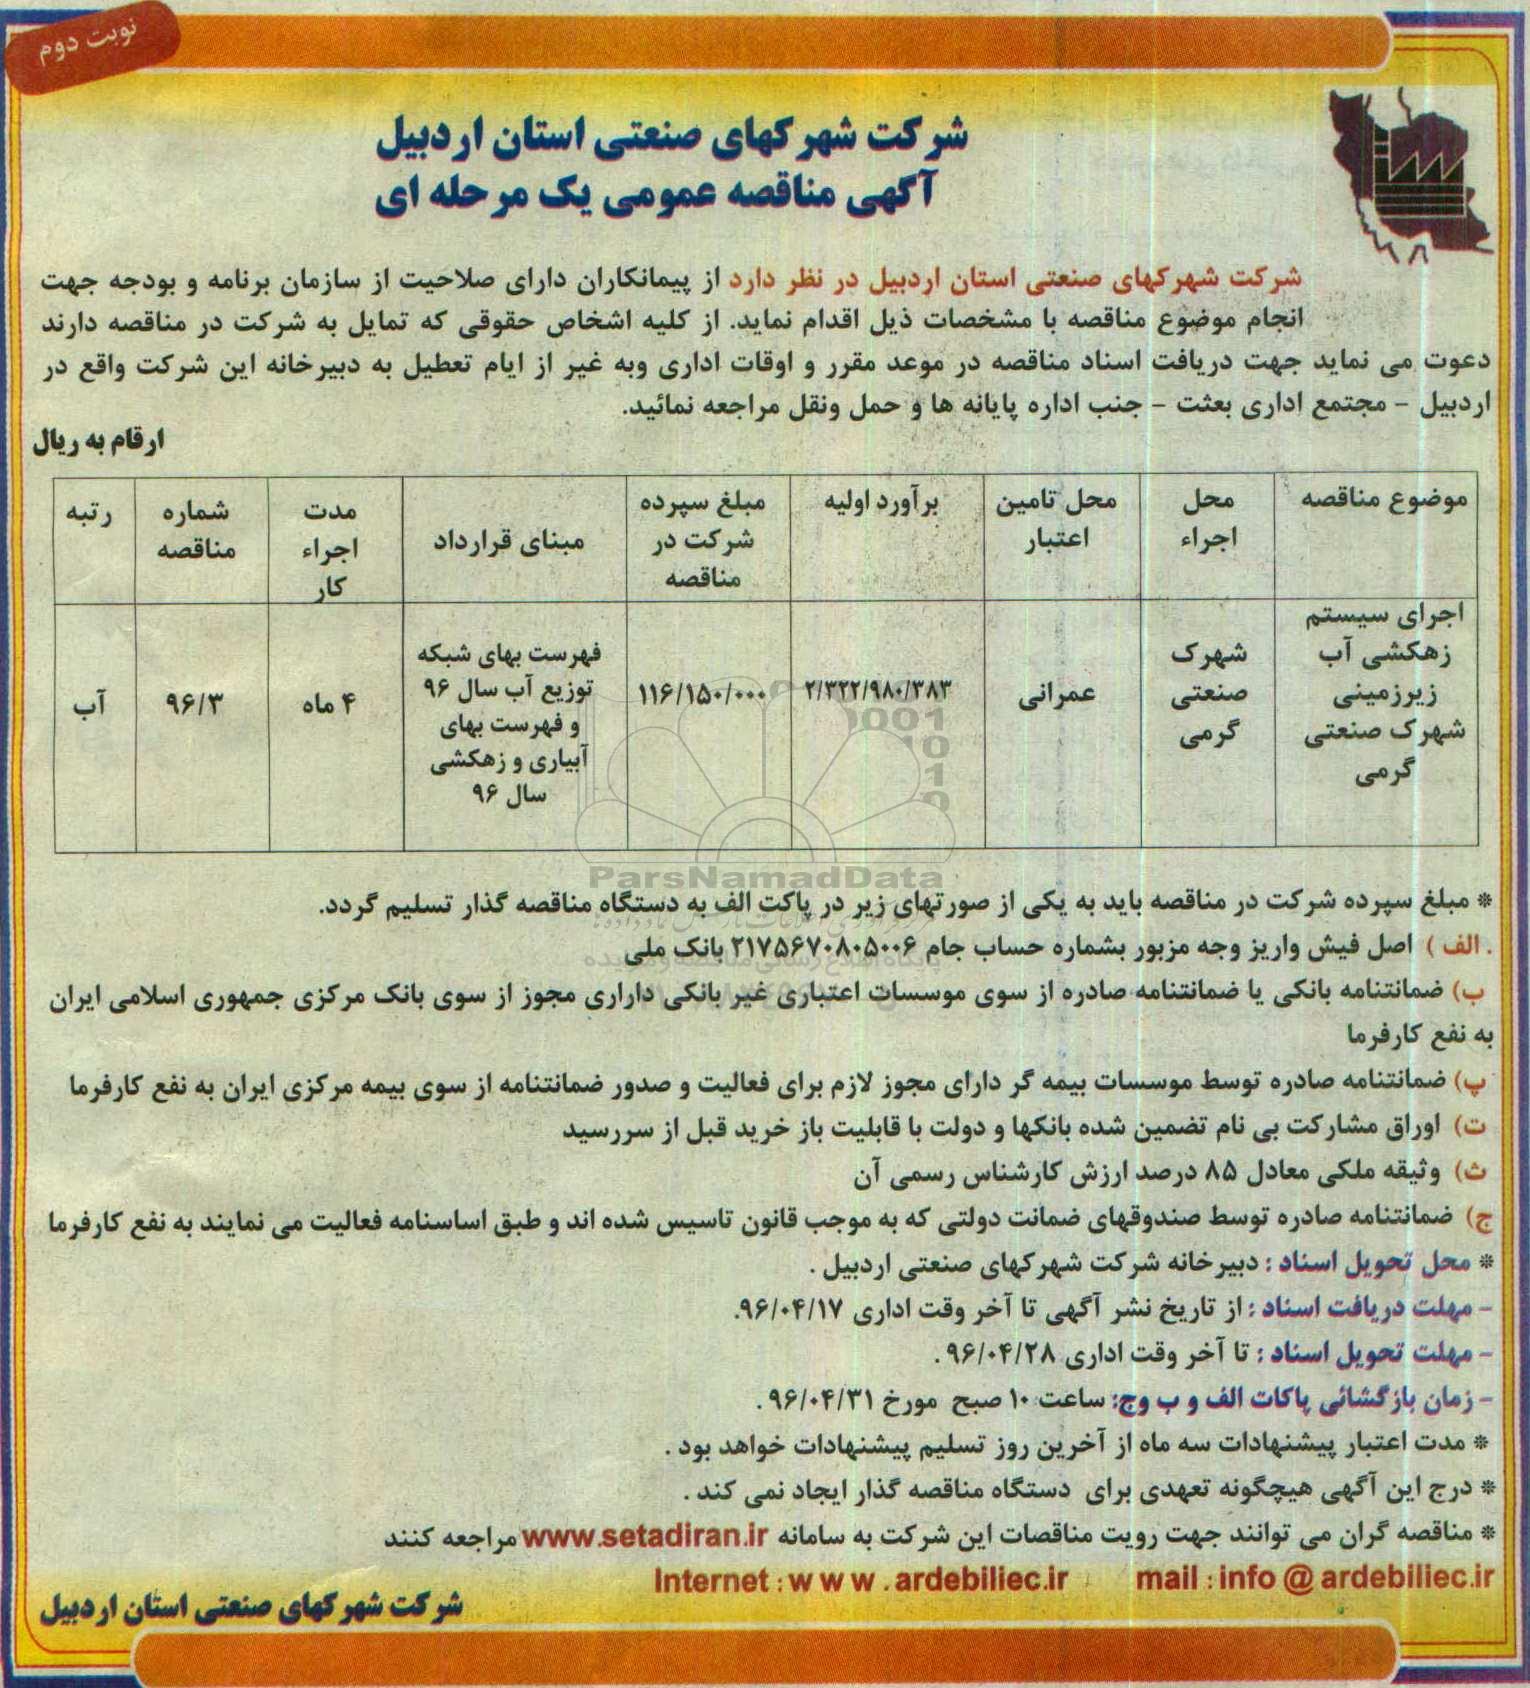 نوبت دوم
شرکت شهرکهای صنعتی استان اردبیل
آگهی مناقصه عمومی یک مرحله ای
شرکت شهرکهای صنعتی استان اردبیل در نظر دارد از پیمانکاران دارای صلاحیت از سازمان برنامه و بودجه جهت
انجام موضوع مناقصه با مشخصات ذیل اقدام نماید. از کلیه اشخاص حقوقی که تمایل به شرکت در مناقصه دارند
دعوت می نماید جهت دریافت اسناد مناقصه در موعد مقرر و اوقات اداری وبه غیر از ایام تعطیل به دبیرخانه این شرکت واقع در
اردبیل – مجتمع اداری بعثت – جنب اداره پایانه ها و حمل ونقل مراجعه نمائید.
ارقام به ریال
موضوع مناقصه
محل
اجراء
محل تامین
اعتبار
برآورد اولیه
مبلغ سپرده
شرکت در
مناقصه
مبنای قرارداد
مدت
اجراء
کار
شماره
مناقصه
رتبه
اجرای سیستم
زهکشی آب
زیرزمینی
شهرک صنعتی
گرمی
شهرک
صنعتی
گرمی
عمرانی
۲/۳۲۲/۹۸۰/۳۸۳
۱۱۶/۱۵۰/۰۰۰
فهرست بهای شبکه
توزیع آب سال ۹۶
و فهرست بهای
آبیاری و زهکشی
سال ۹۶
۴ ماه
۹۶/۳
آب
ParsNamadData
* مبلغ سپرده شرکت در مناقصه باید به یکی از صورتهای زیر در پاکت الف به دستگاه مناقصه گذار تسلیم گردد.
. الف ) اصل فیش واریز وجه مزبور بشماره حساب جام ۲۱۷۵۶۷۰۸۰۵۰۰۶ بانک ملی
ب) ضمانتنامه بانکی یا ضمانتنامه صادره از سوی موسسات اعتباری غیر بانکی داراری مجوز از سوی بانک مرکزی جمهوری اسلامی ایران
به نفع کارفرما
پ) ضمانتنامه صادره توسط موسسات بیمه گر دارای مجوز لازم برای فعالیت و صدور ضمانتنامه از سوی بیمه مرکزی ایران به نفع کارفرما
ت) اوراق مشارکت بی نام تضمین شده بانکها و دولت با قابلیت باز خرید قبل از سررسید
ث) وثیقه ملکی معادل ۸۵ درصد ارزش کارشناس رسمی آن
ج) ضمانتنامه صادره توسط صندوقهای ضمانت دولتی که به موجب قانون تاسیس شده اند و طبق اساسنامه فعالیت می نمایند به نفع کارفرما
* محل تحویل اسناد : دبیرخانه شرکت شهرکهای صنعتی اردبیل .
– مهلت دریافت اسناد : از تاریخ نشر آگهی تا آخر وقت اداری ۹۶/۰۴/۱۷.
– مهلت تحویل اسناد : تا آخر وقت اداری ۹۶/۰۴/۲۸ .
– زمان بازگشائی پاکات الف و ب وج: ساعت ۱۰ صبح مورخ ۹۶/۰۴/۳۱ .
* مدت اعتبار پیشنهادات سه ماه از آخرین روز تسلیم پیشنهادات خواهد بود .
* درج این آگهی هیچگونه تعهدی برای دستگاه مناقصه گذار ایجاد نمی کند .
* مناقصه گران می توانند جهت رویت مناقصات این شرکت به سامانه www.setadiran.ir مراجعه کنند
Internet : w w w . ardebiliec.ir mail : info @ ardebiliec.ir
شرکت شهرکهای صنعتی استان اردبیل